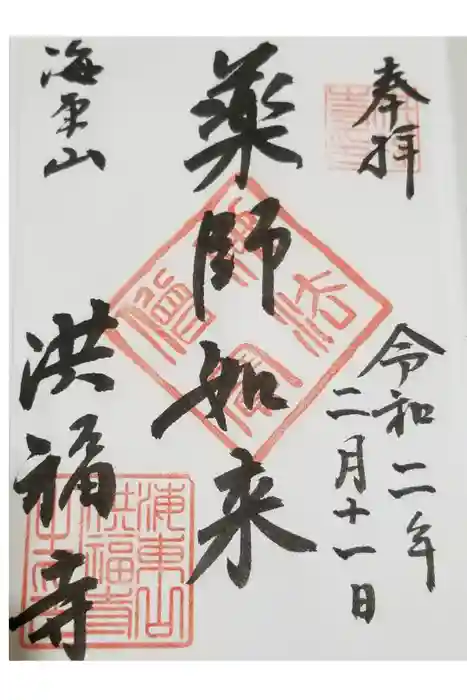 奉拝
令和二年
二月十一日
薬師如来
海東山
洪福寺
海東山
洪福寺